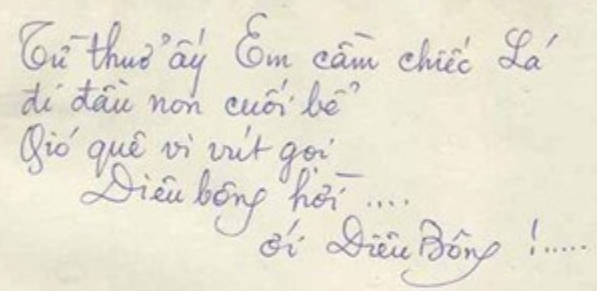 Từ thuở ấy Em cầm chiếc Lá
đi đầu non cuối bể
Gió quê vi vút gọi
Diêu bông hời ....
ới Diêu Bông !.....